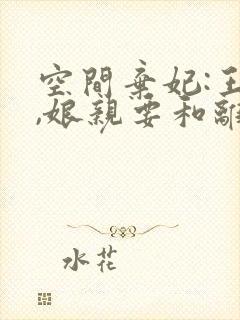 空間棄妃:王
,娘親要和離
水花